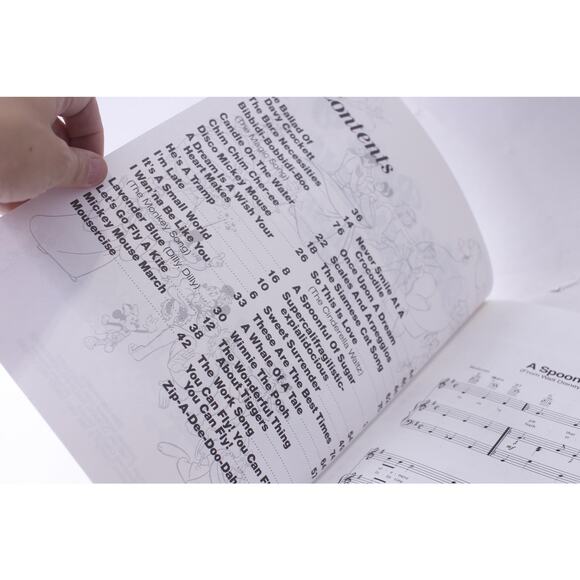 Contents
The Ballad Of
Davy Crockett 36
The Bare Necessities 14
Bibbidi-Bobbidi-Boo 76
(The Magic Song)
Candle On The Water 22
Chim Chim Cher-ee 18
Disco Mickey Mouse 26
A Dream Is A Wish Your
Heart Makes 8
He's A Tramp 16
I'm Late 10
It's A Small World 6
I Wan'na Be Like You 33
(The Monkey Song)
Lavender Blue (Dilly Dilly) 30
Let's Go Fly A Kite 12
Mickey Mouse March 38
Mousercise 42
Never Smile At A
Crocodile
Once Upon A Dream
Scales And Arpeggios
The Siamese Cat Song
So This Is Love
(The Cinderella Waltz)
A Spoonful Of Sugar
Supercalifragilistic-
expialidocious
Sweet Surrender
These Are The Best Times
A Whale Of A Tale
Winnie The Pooh
The Wonderful Thing
About Tiggers
The Work Song
You Can Fly! You Can Fly!
You Can Fly!
Zip-A-Dee-Doo-Dah
A Spoon
(From Walt Disney